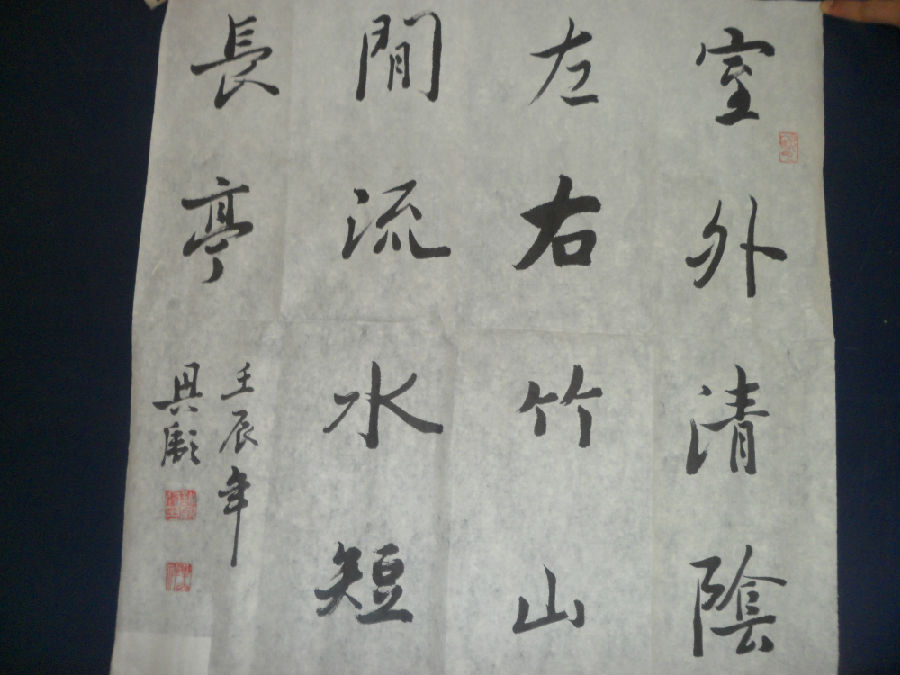 室外清陰
左右竹山
間流水短
長亭
壬辰年